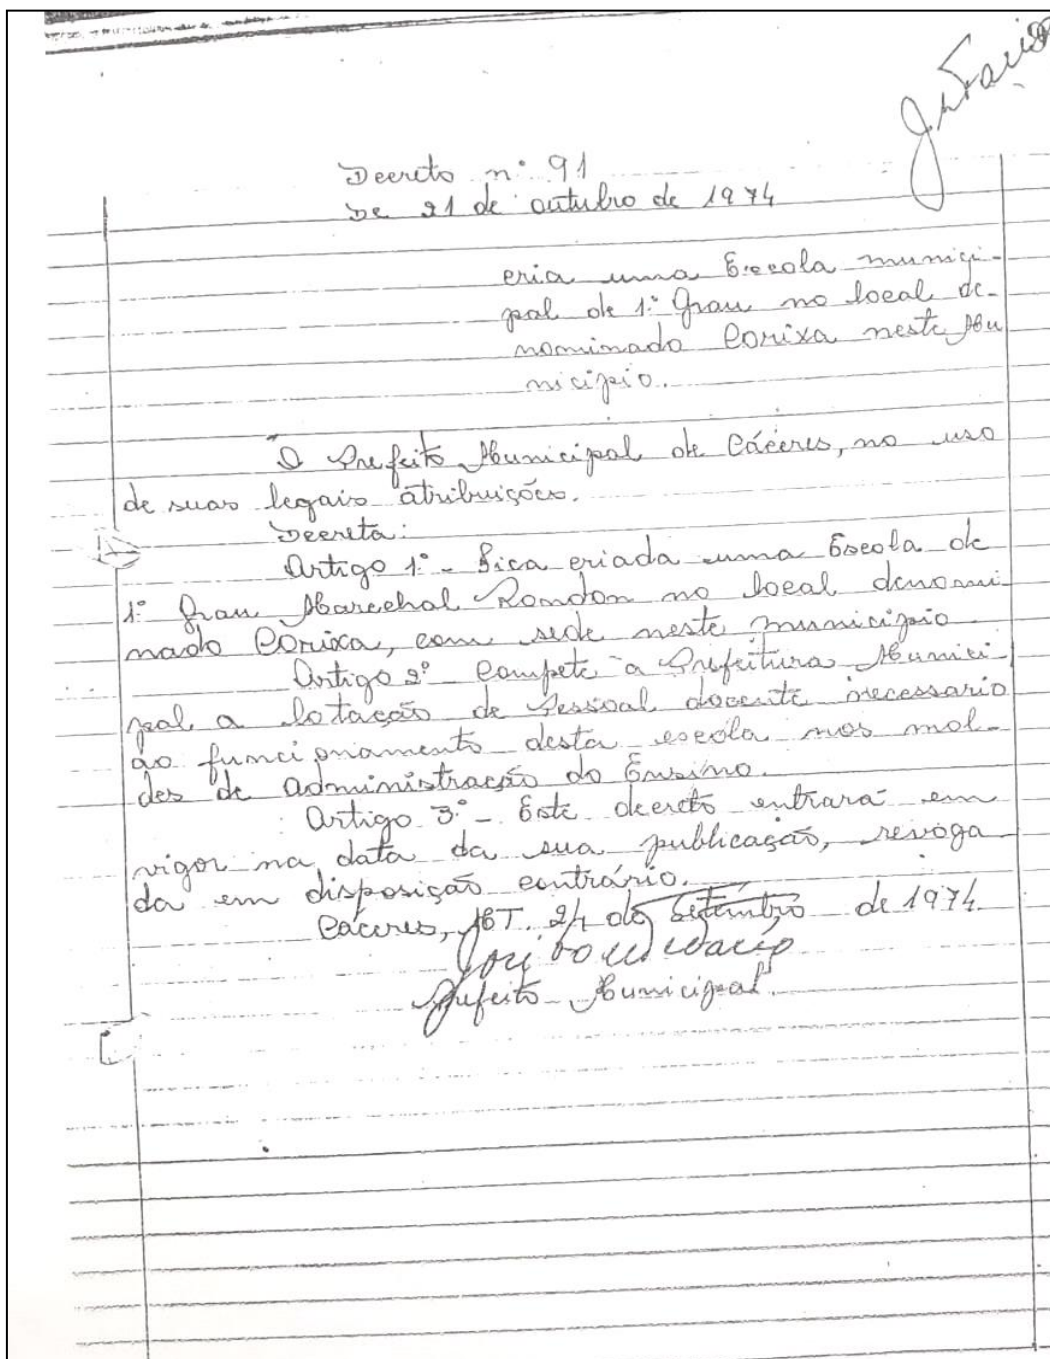 Decreto nº 91
De 21 de outubro de 1974
cria uma Escola munici-
pal de 1º Grau no local de-
nominado Corixa neste Mu
nicipio.
O Prefeito Municipal de Cáceres, no uso
de suas legais atribuições.
Decreta:
Artigo 1º - Fica criada uma Escola de
1º Grau Marechal Rondon no local denomi
nado Corixa, com sede neste municipio
Artigo 2º Compete a Prefeitura Munici
pal a lotação de Pessoal docente necessario
ao funcionamento desta escola nos mol-
des de Administração do Ensino.
Artigo 3º - Este decreto entrará em
vigor na data da sua publicação, revoga
da em disposição contrário.
Cáceres, MT. 21 de Setembro de 1974
Prefeito Municipal